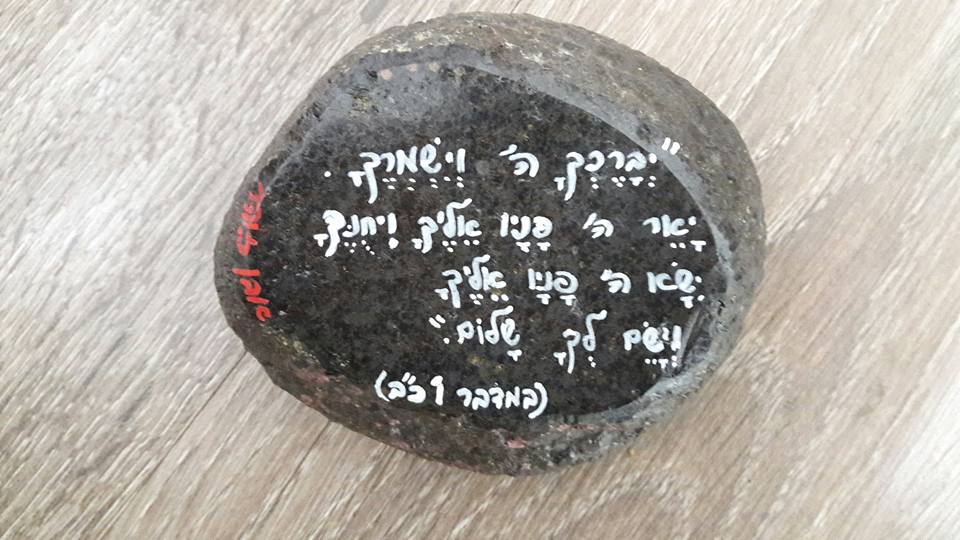 "יְבָרֶכְךָ ה' וְיִשְׁמְרֶךָ.
יָאֵר ה' פָּנָיו אֵלֶיךָ וִיחֻנֶּךָּ
יִשָּׂא ה' פָּנָיו אֵלֶיךָ
וְיָשֵׂם לְךָ שָׁלוֹם."
(במדבר ו כ"ב)